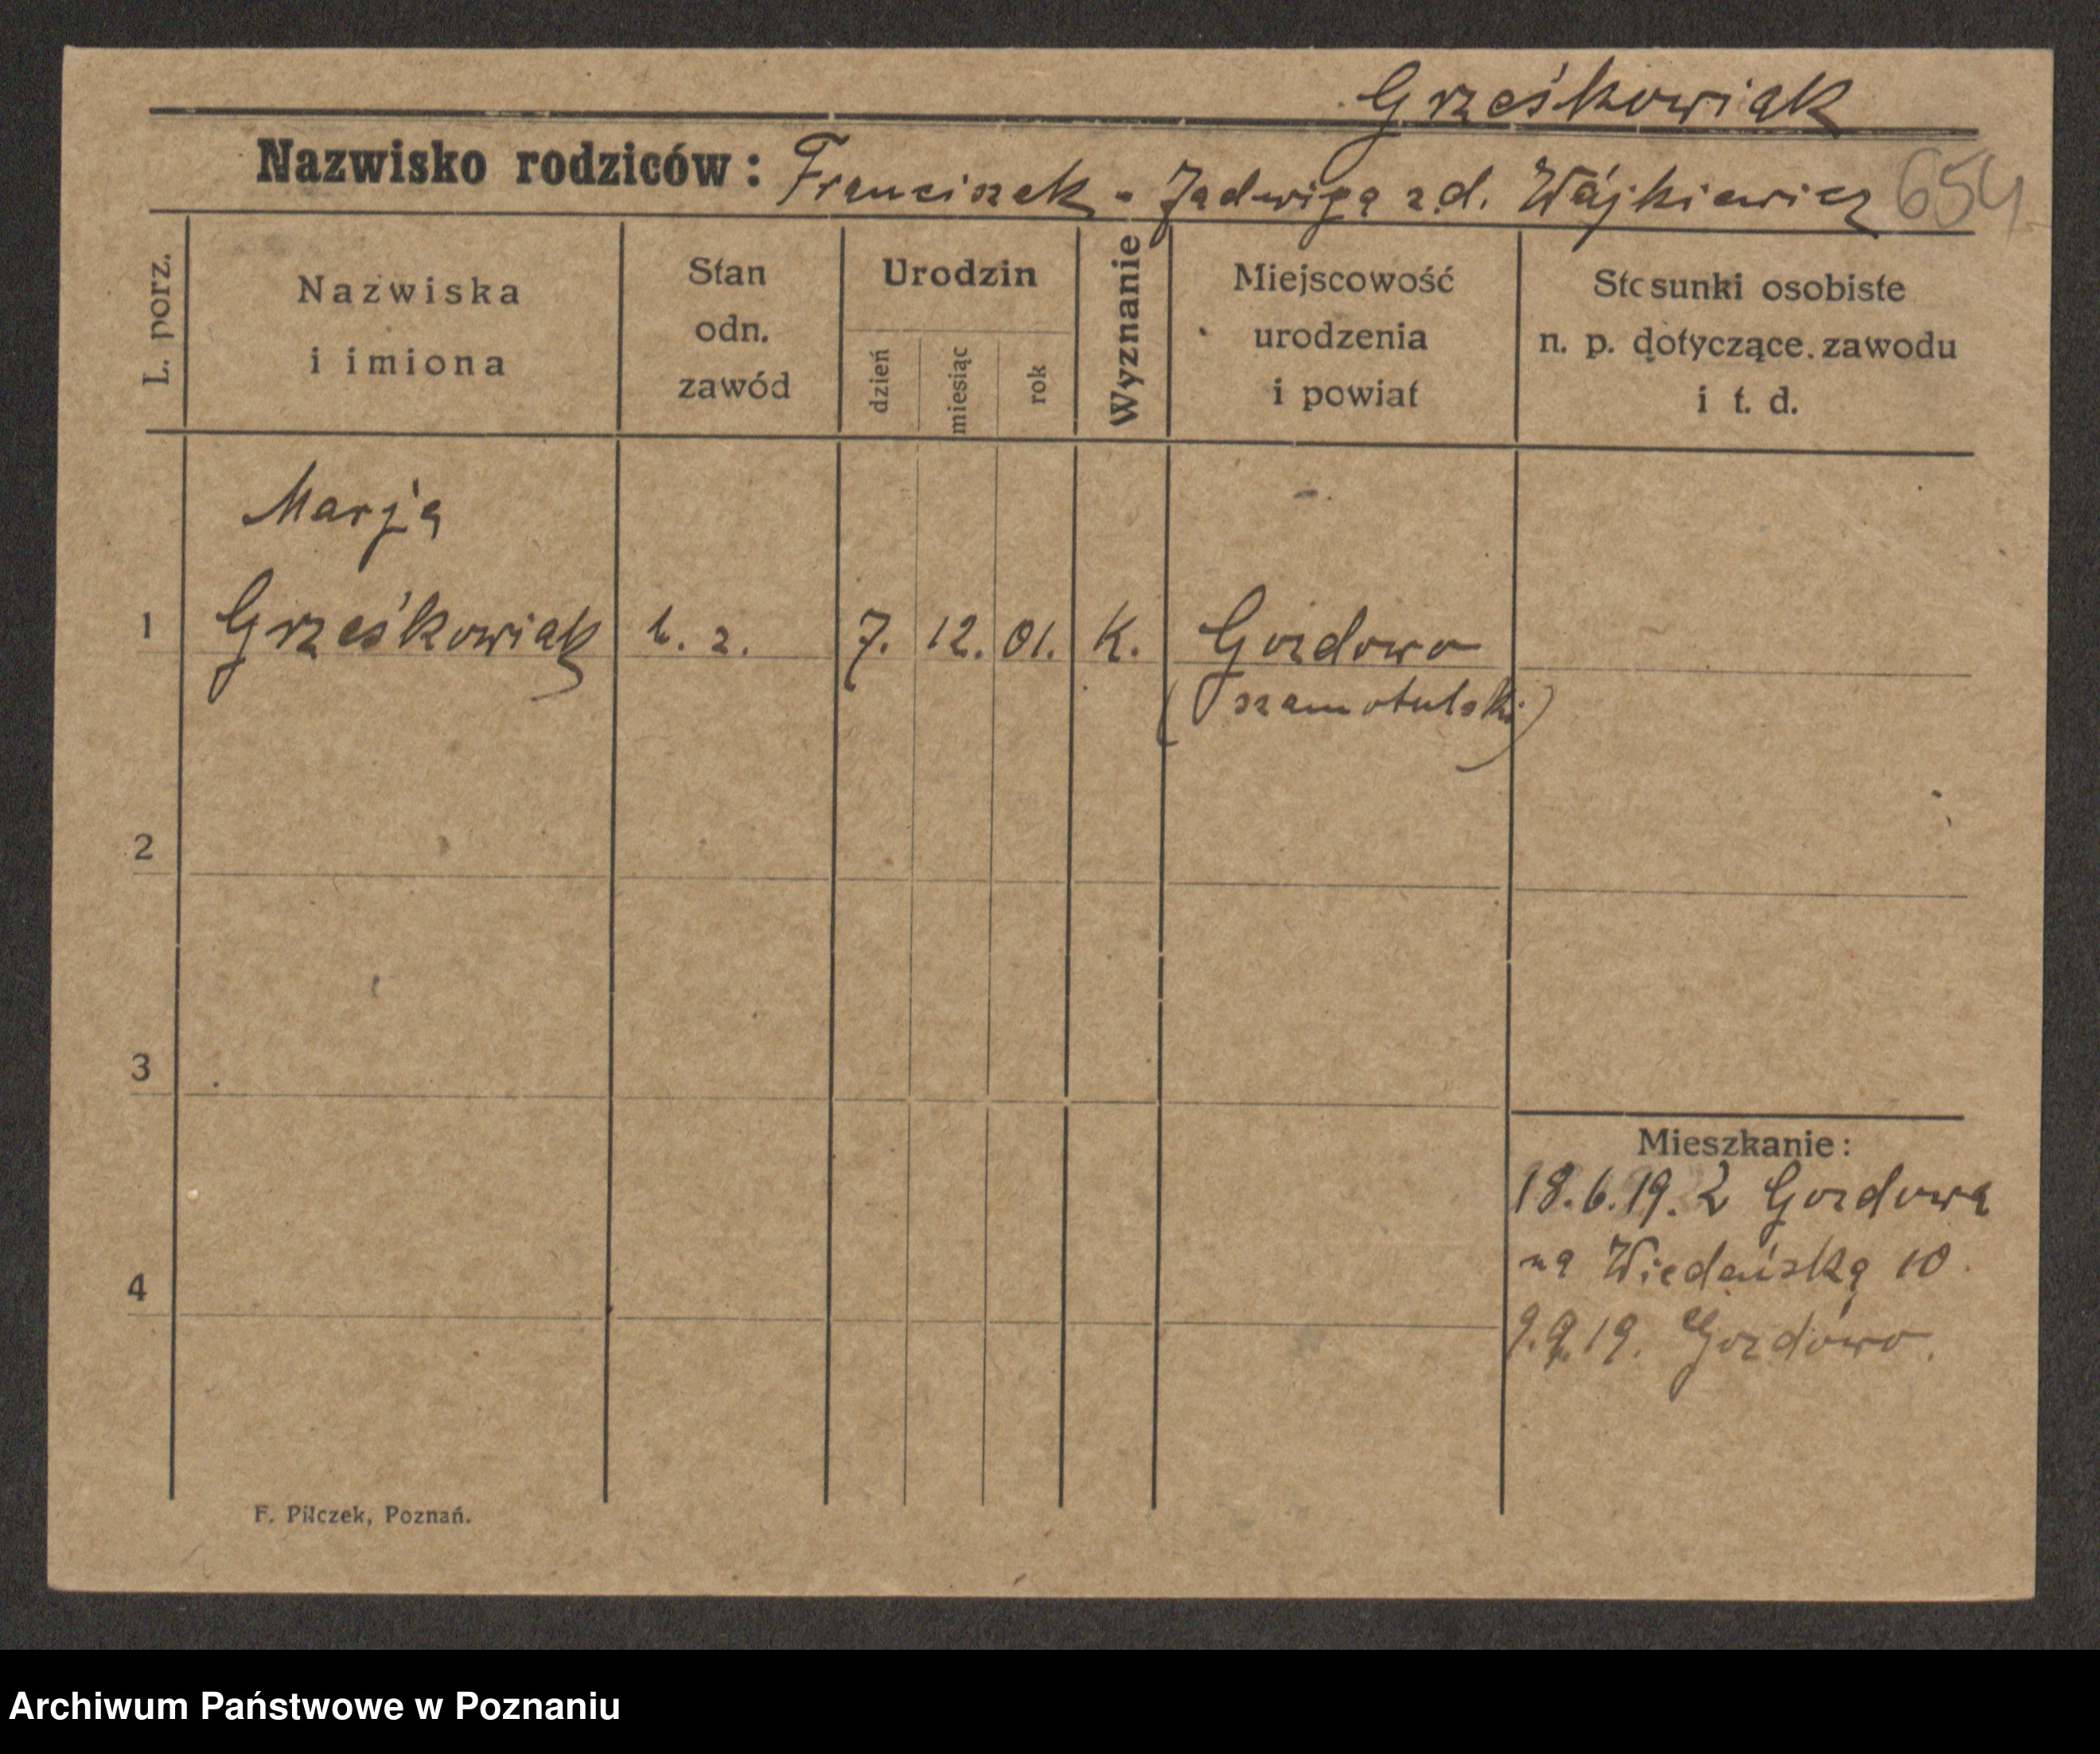 Grześkowiak
Nazwisko rodziców: Franciszek - Jadwiga zd. Wójkiewicz 654
L. porz.
Nazwiska
i imiona
Stan
odn.
zawód
Urodzin
dzień
miesiąc
rok
Wyznanie
Miejscowość
urodzenia
i powiat
Stosunki osobiste
n. p. dotyczące zawodu
i t. d.
Marja
1 Grześkowiak b. z. 7. 12. 01. K. Gozdowo
(szamotulski)
2
3
4
Mieszkanie:
18.6.19. Z Gozdowa
na Wiedeńską 10.
9.9.19. Gozdowo.
F. Pilczek, Poznań.
Archiwum Państwowe w Poznaniu